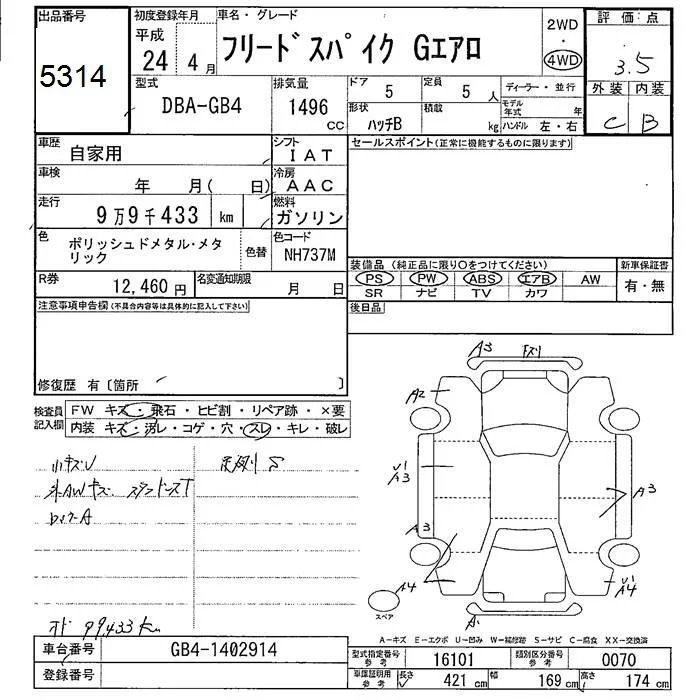 出品番号
5314
初度登録年月
平成
24 4月
車名・グレード
フリードスパイク Gエアロ
2WD
・
4WD
評価点
3.5
外装 内装
C B
型式
DBA-GB4
排気量
1496
CC
ドア
5
定員
5 人
形状
ハッチB
積載
kg
ディーラー・並行
モデル年式 年
ハンドル 左・右
車歴
自家用
シフト
IAT
車検
年 月( 日)
冷房
AAC
走行
9万9千433 km
燃料
ガソリン
色
ポリッシュドメタル・メタ
リック
色替
色コード
NH737M
R券
12,460円
名変通知期限
月 日
セールスポイント(正常に機能するものに限ります)
装備品(純正品に限り○をつけてください)
PS PW ABS エアB AW
SR ナビ TV カワ
新車保証書
有・無
後日品
注意事項申告欄(不具合内容等は具体的に記入して下さい)
修復歴 有〔箇所 〕
検査員
記入欄
FW キズ・飛石・ヒビ割・リペア跡・×要
内装 キズ・汚レ・コゲ・穴・スレ・キレ・破レ
小キズU
AWキズ
A
オド 99433km
A3
A2
U1
A3
A3
A3
A4
U1
A4
A
スペア
A―キズ E―エクボ U―凹み W―補修跡 S―サビ C―腐食 XX―交換済
車台番号
GB4-1402914
登録番号
型式指定番号
参考
16101
類別区分番号
参考
0070
車庫証明用
参考
長さ
421 cm
幅
169 cm
高さ
174 cm